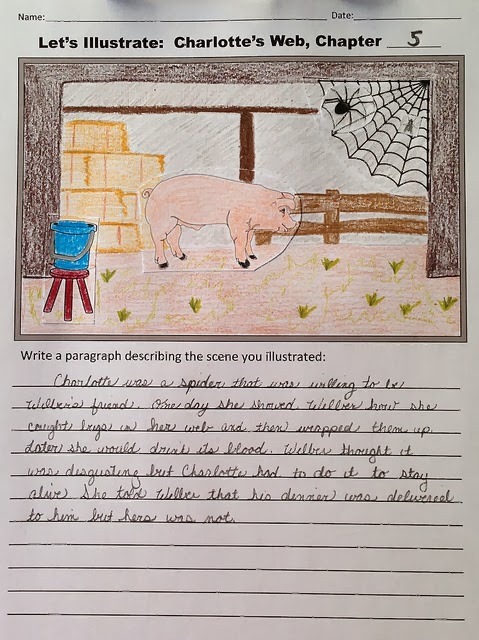 Name: Date:
Let's Illustrate: Charlotte's Web, Chapter 5
Write a paragraph describing the scene you illustrated:
Charlotte was a spider that was willing to be
Wilber's friend. One day she showed Wilber how she
caught bugs in her web and then wrapped them up.
Later she would drink its blood. Wilber thought it
was disgusting but Charlotte had to do it to stay
alive. She told Wilber that his dinner was delivered
to him but hers was not.